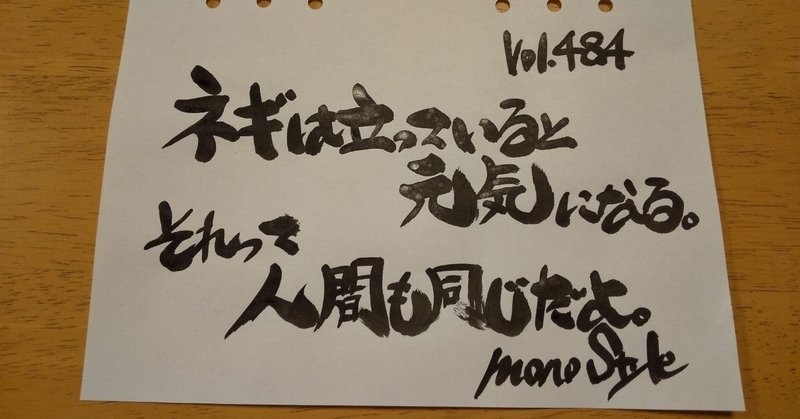 Vol.484
ネギは立っていると
元気になる。
それって
人間も同じだよ。
mono Style